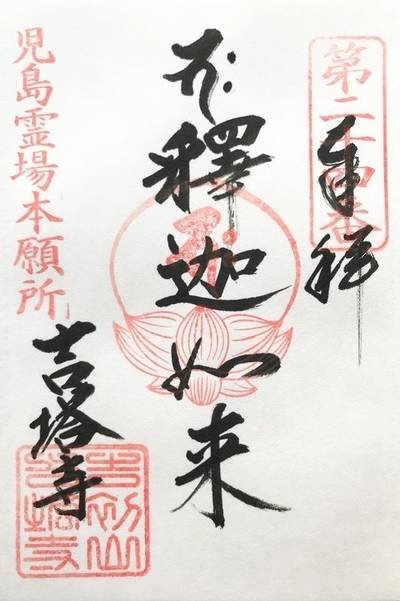 第二十四番
奉拝
釋迦如来
児島霊場本願所
吉塔寺